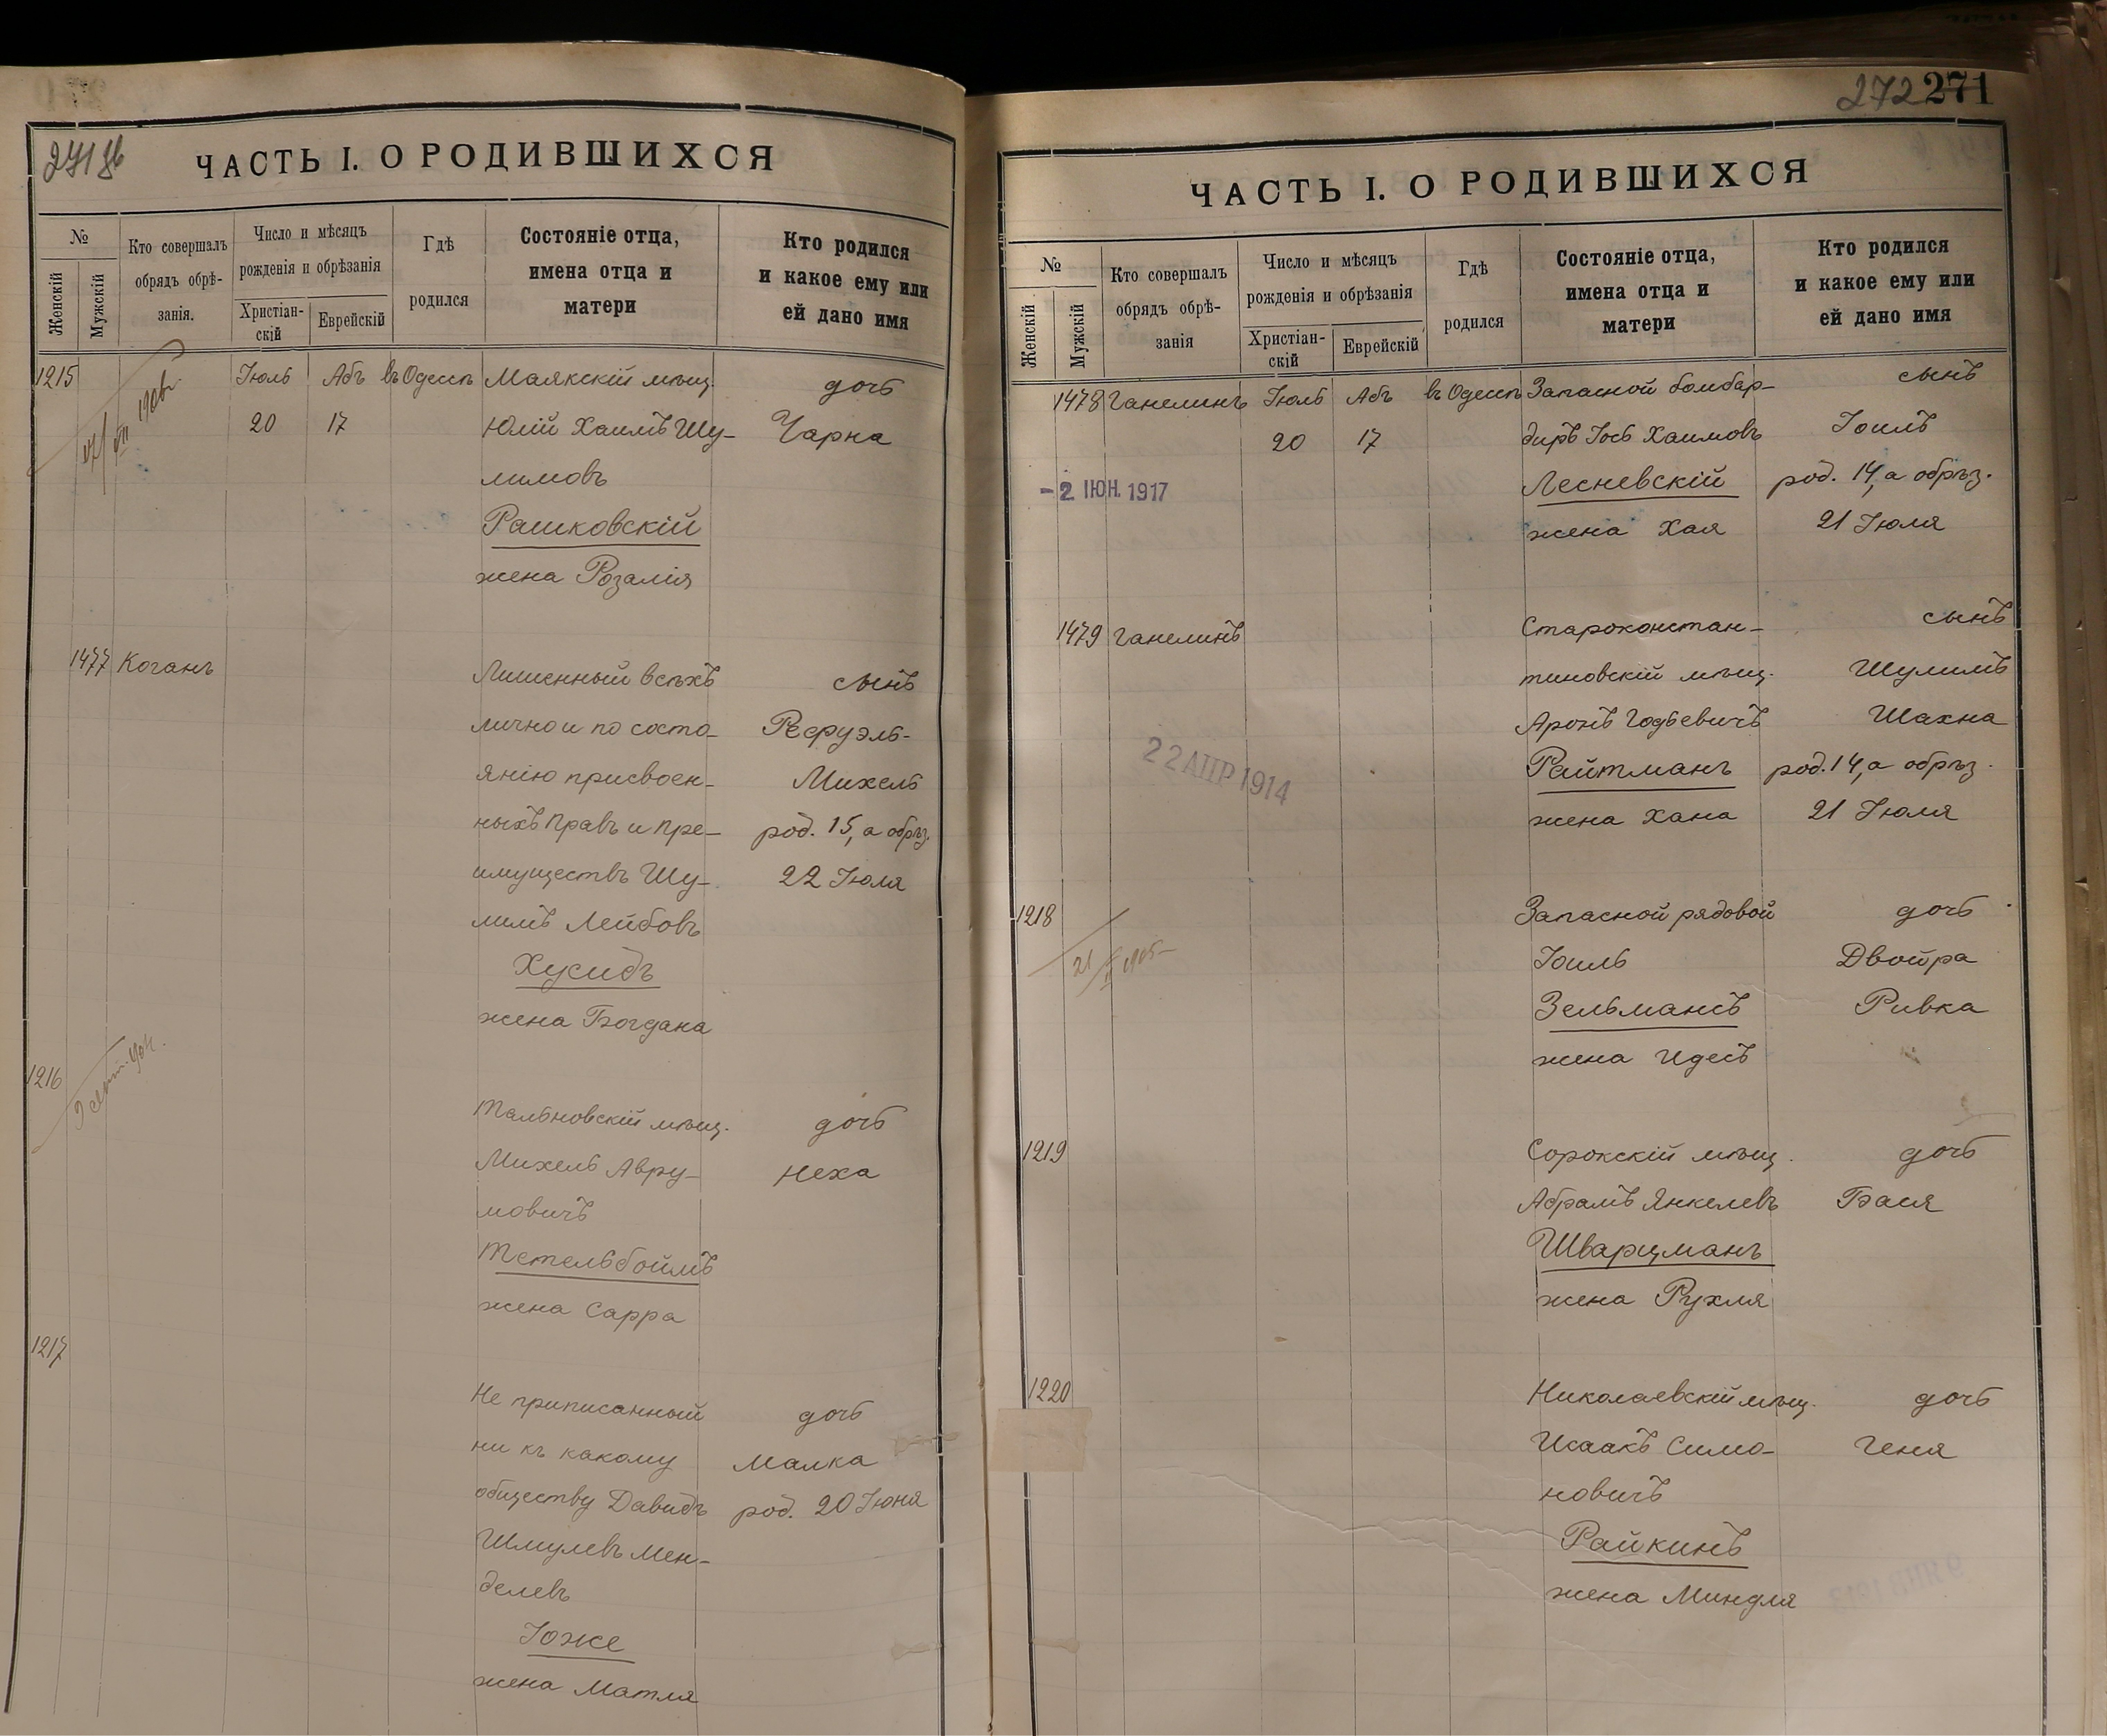 271 об
ЧАСТЬ I. О РОДИВШИХСЯ
№
Женскій
Мужскій
Кто совершалъ
обрядъ обрѣ-
занія.
Число и мѣсяцъ
рожденія и обрѣзанія
Христіан-
скій
Еврейскій
Гдѣ
родился
Состояніе отца,
имена отца и
матери
Кто родился
и какое ему или
ей дано имя
1215 Іюль Абъ въ Одессѣ Маякскій мѣщ. дочь
20 17 Юлій Хаимъ Шу- Чарна
лимовъ
Рашковскій
жена Розалія
1477 Коганъ
Лишенный всѣхъ сынъ
лично и по состо- Рефуэль-
янію присвоен- Михель
ныхъ правъ и пре- род. 15, а обрѣз.
имуществъ Шу- 22 Іюля
лимъ Лейбовъ
Хусидъ
жена Богдана
1216
Тальновскій мѣщ. дочь
Михель Авру- Неха
мовичъ
Тетельбоймъ
жена Сарра
1217
Не приписанный дочь
ни къ какому Малка
обществу Давидъ род. 20 Іюня
Шмулевъ Мен-
делевъ
Іоже
жена Матля
272 271
ЧАСТЬ I. О РОДИВШИХСЯ
№
Женскій
Мужскій
Кто совершалъ
обрядъ обрѣ-
занія
Число и мѣсяцъ
рожденія и обрѣзанія
Христіан-
скій
Еврейскій
Гдѣ
родился
Состояніе отца,
имена отца и
матери
Кто родился
и какое ему или
ей дано имя
1478 Ганелинъ Іюль Абъ въ Одессѣ Запасной бомбар- сынъ
20 17 диръ Іось Хаимовъ Іоилъ
- 2 ІЮН. 1917 Лесневскій род. 14, а обрѣз.
жена Хая 21 Іюля
1479 Ганелинъ Староконстан- сынъ
тиновскій мѣщ. Шулимъ
Аронъ Годьевичъ Шахна
22 АПР 1914 Райтманъ род. 14, а обрѣз.
жена Хана 21 Іюля
1218 Запасной рядовой дочь
Іоиль Двойра
Зельмансъ Ривка
жена Идесъ
1219 Сорокскій мѣщ. дочь
Абрамъ Янкелевъ Бася
Шварцманъ
жена Рухля
1220 Николаевскій мѣщ. дочь
Исаакъ Симо- Геня
новичъ
Райкинъ
жена Миндля